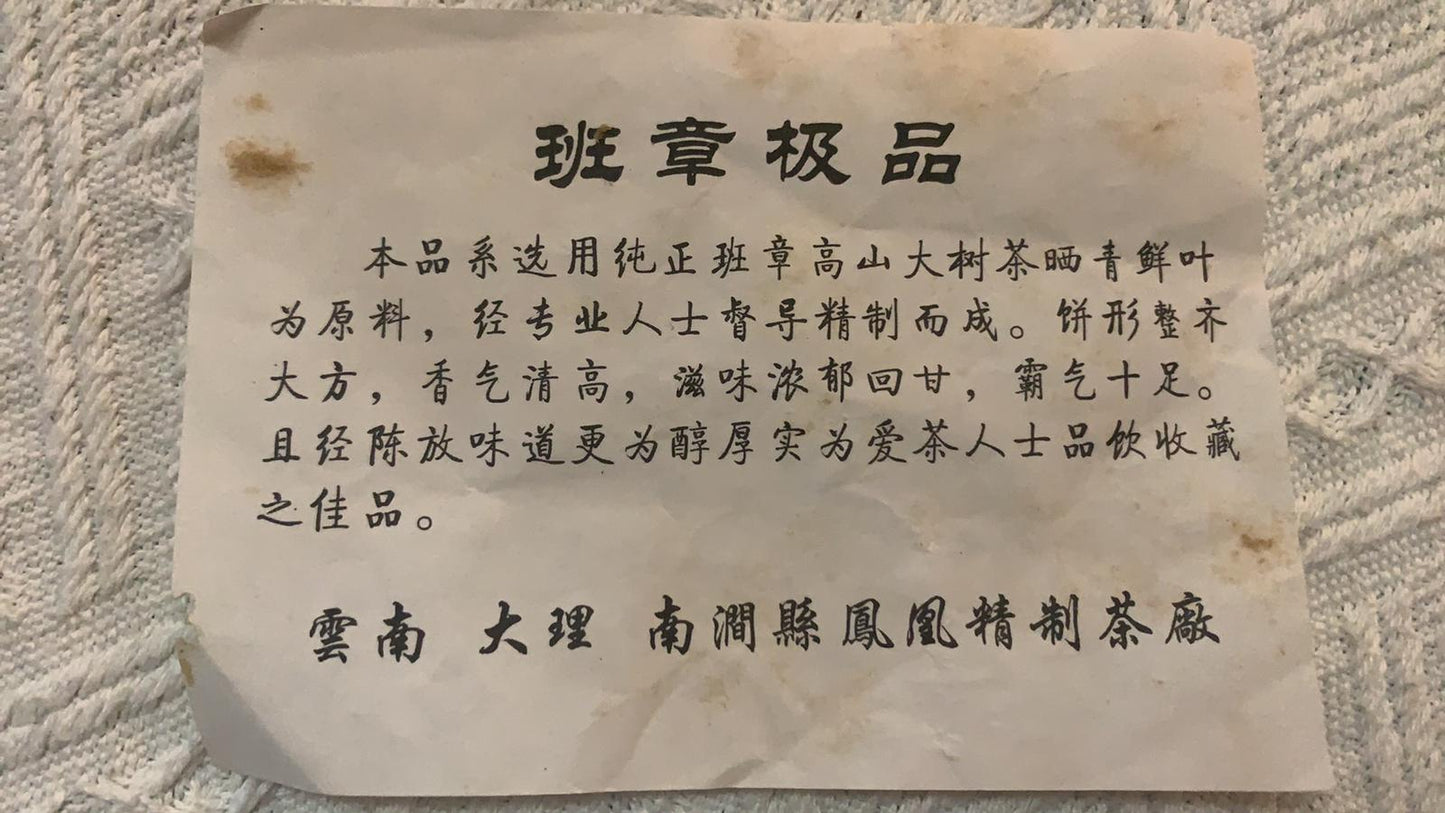 班章极品
本品系选用纯正班章高山大树茶晒青鲜叶
为原料，经专业人士督导精制而成。饼形整齐
大方，香气清高，滋味浓郁回甘，霸气十足。
且经陈放味道更为醇厚实为爱茶人士品饮收藏
之佳品。
雲南 大理 南澗縣鳳凰精制茶廠